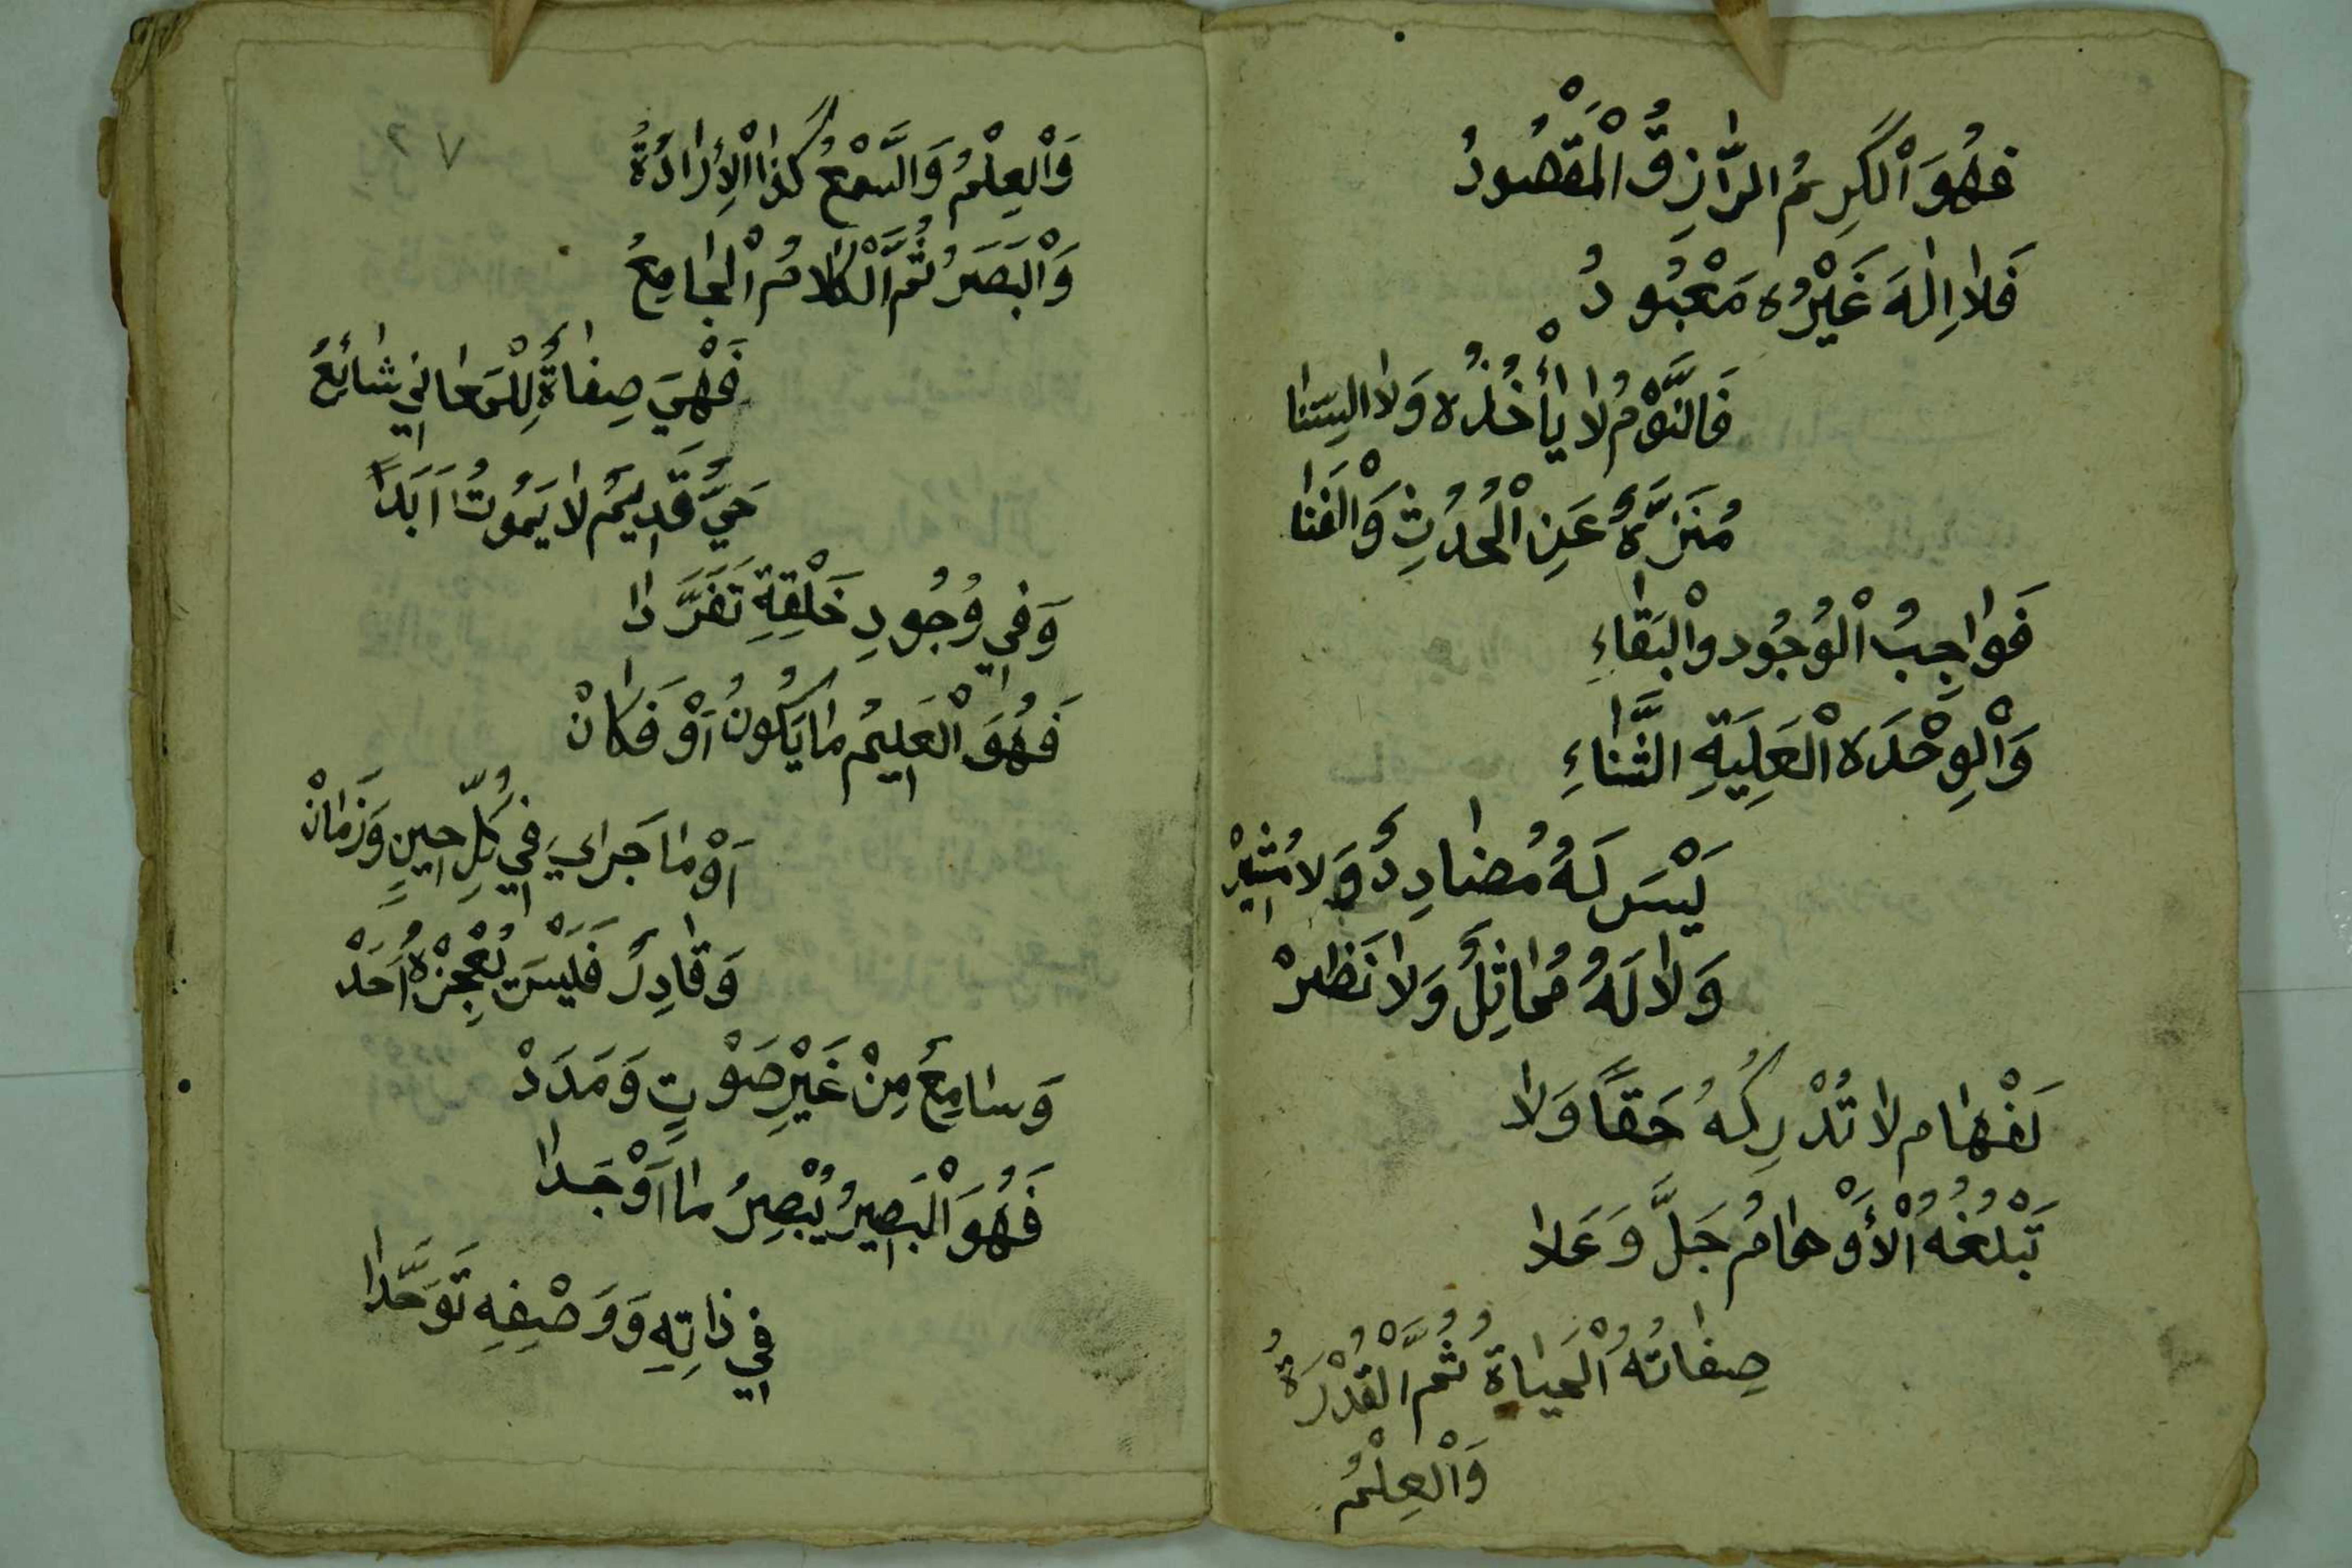 فَهُوَ اْلكَرِيمُ الرَّازِقُ الْمَقْصُودُ
فَلَا اِلٰهَ غَيْرُه مَعْبُودُ
فَالنَّوْمُ لَا يَأْخُذُه وَلَا السِّنَا
مُنَزَّهٌ عَنِ الْحُدُثِ وَالْفَنَا
فَوَاجِبُ الْوُجُود وَالْبَقَاءِ
وَالْوِحْدَه الْعَلِيَةِ الثَّنَاءِ
لَيْسَ لَهُ مُضَادِدٌ وَلَا مُثِيْر
وَلَا لَهُ مُمَاثِلٌ وَلَا نَظِرْ
لَفْهَام لَا تُدْرِكُهُ حَقًّا وَلَا
تَبْلُغُهُ الْأَوْهَامُ جَلَّ وَعَلَا
صِفَاتُهُ الْحَيَاةُ ثُمَّ الْقُدْرَةُ
وَالْعِلْمُ
٢٧
وَالْعِلْمُ وَالسَّمْعُ كَذَا الْاِرَادَةُ
وَالْبَصَرُ ثُمَّ الْكَلَامُ الْجَامِعُ
فَهْيَ صِفَاةٌ لِلْمَعَانِي شَائِعٌ
حَيٌّ قَدِيمٌ لَا يَمُوتُ اَبَدًا
وَفِي وُجُودِ خَلْقِهِ تَفَرَّدَا
فَهُوَ الْعَلِيمُ مَا يَكُونُ اَوْ فَكَانْ
اَوْ مَا جَرَاي فِي كُلِّ حِينٍ وَزَمَانْ
وَقَادِرٌ فَلَيْسَ يُعْجِزْهُ اَحَدْ
وَسَامِعٌ مِنْ غَيْرِ صَوْتٍ وَمَدَدْ
فَهُوَ الْبَصِيرُ يُبْصِرُ مَا اَوْجَدَا
فِي ذَاتِهِ وَوَصْفِهِ تَوَحَّدَا